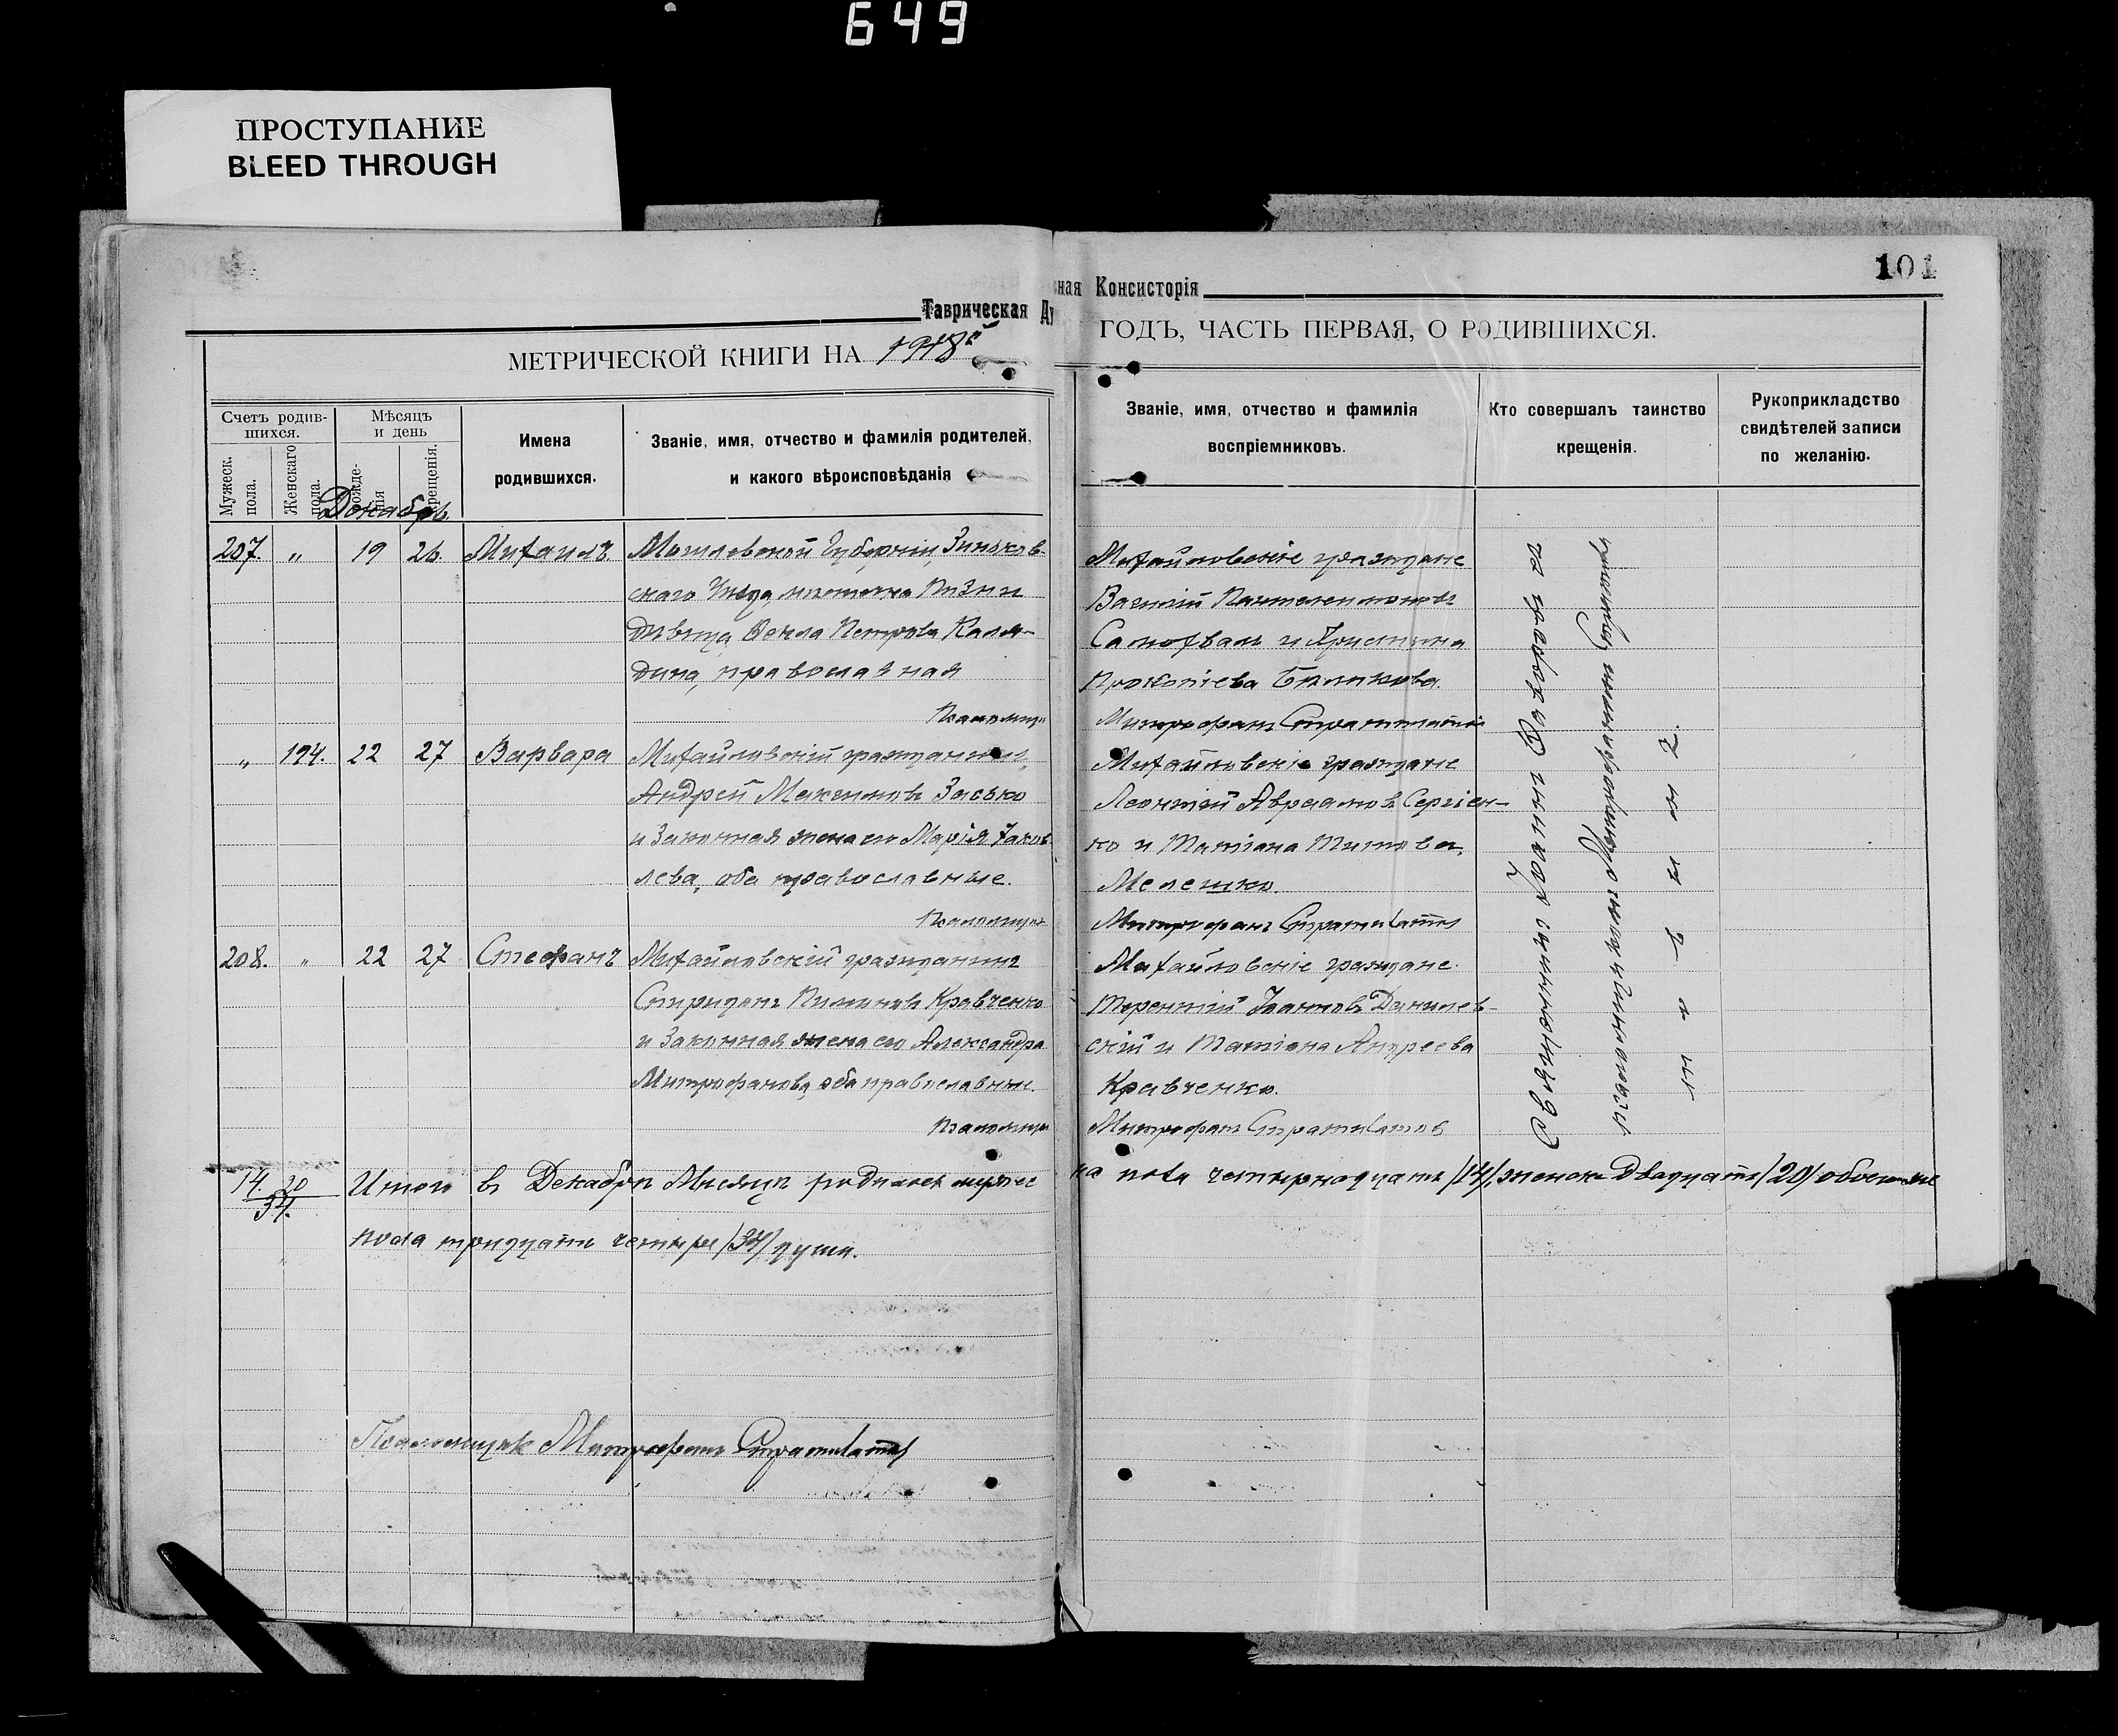 649
ПРОСТУПАНИЕ
BLEED THROUGH
101
Таврическая Ду
ная Консисторія
МЕТРИЧЕСКОЙ КНИГИ НА 1918й
ГОДЪ, ЧАСТЬ ПЕРВАЯ, О РОДИВШИХСЯ.
Счетъ родив-
шихся.
Мужеск.
пола.
Женскаго
пола.
Мѣсяцъ
и день
рожде-
нія
крещенія.
Имена
родившихся.
Званіе, имя, отчество и фамилія родителей,
и какого вѣроисповѣданія
Званіе, имя, отчество и фамилія
воспріемниковъ.
Кто совершалъ таинство
крещенія.
Рукоприкладство
свидѣтелей записи
по желанію.
Декабрь
207. " 19 26. Михаилъ. Могилевской Губерніи, Зиньков-
скаго Уѣзда, мѣстечка
Дѣвица Ѳекла Петрова Каля-
дина, православная
Псаломщи
Михайловскіе граждане
Василій Пантелеимоновъ
Самохвалъ и Христина
Прокопіева Бѣликова.
Митрофанъ Стратилатов
" 194. 22 27 Варвара Михайловскій гражданинъ,
Андрей Максимовъ Засько
и Законная жена его Марія Яков-
лева, оба православные.
Псаломщик
Михайловскіе граждане
Леонтій Авраамовъ Сергіен-
ко и Татіана Титова
Мелешко.
Митрофанъ Стратилатов
208. " 22 27 Стефанъ Михайловскій гражданинъ
Спиридонъ Пименовъ Кравченко
и Законная жена его Александра
Митрофанова, оба православные.
Псаломщи
Михайловскіе граждане.
Терентій Іоановъ Данилев-
скій и Татіана Андреева
Кравченко.
Митрофанъ Стратилатовъ
Священникъ Іоаннъ
псаломщикомъ Митрофаномъ
14 20
34.
Итого въ Декабрѣ Мѣсяцѣ родилось мужес
ка пола четырнадцать /14/, женска двадцать /20/ обоего
пола тридцать четыре /34/ души.
Псаломщикъ Митрофанъ Стратилатов